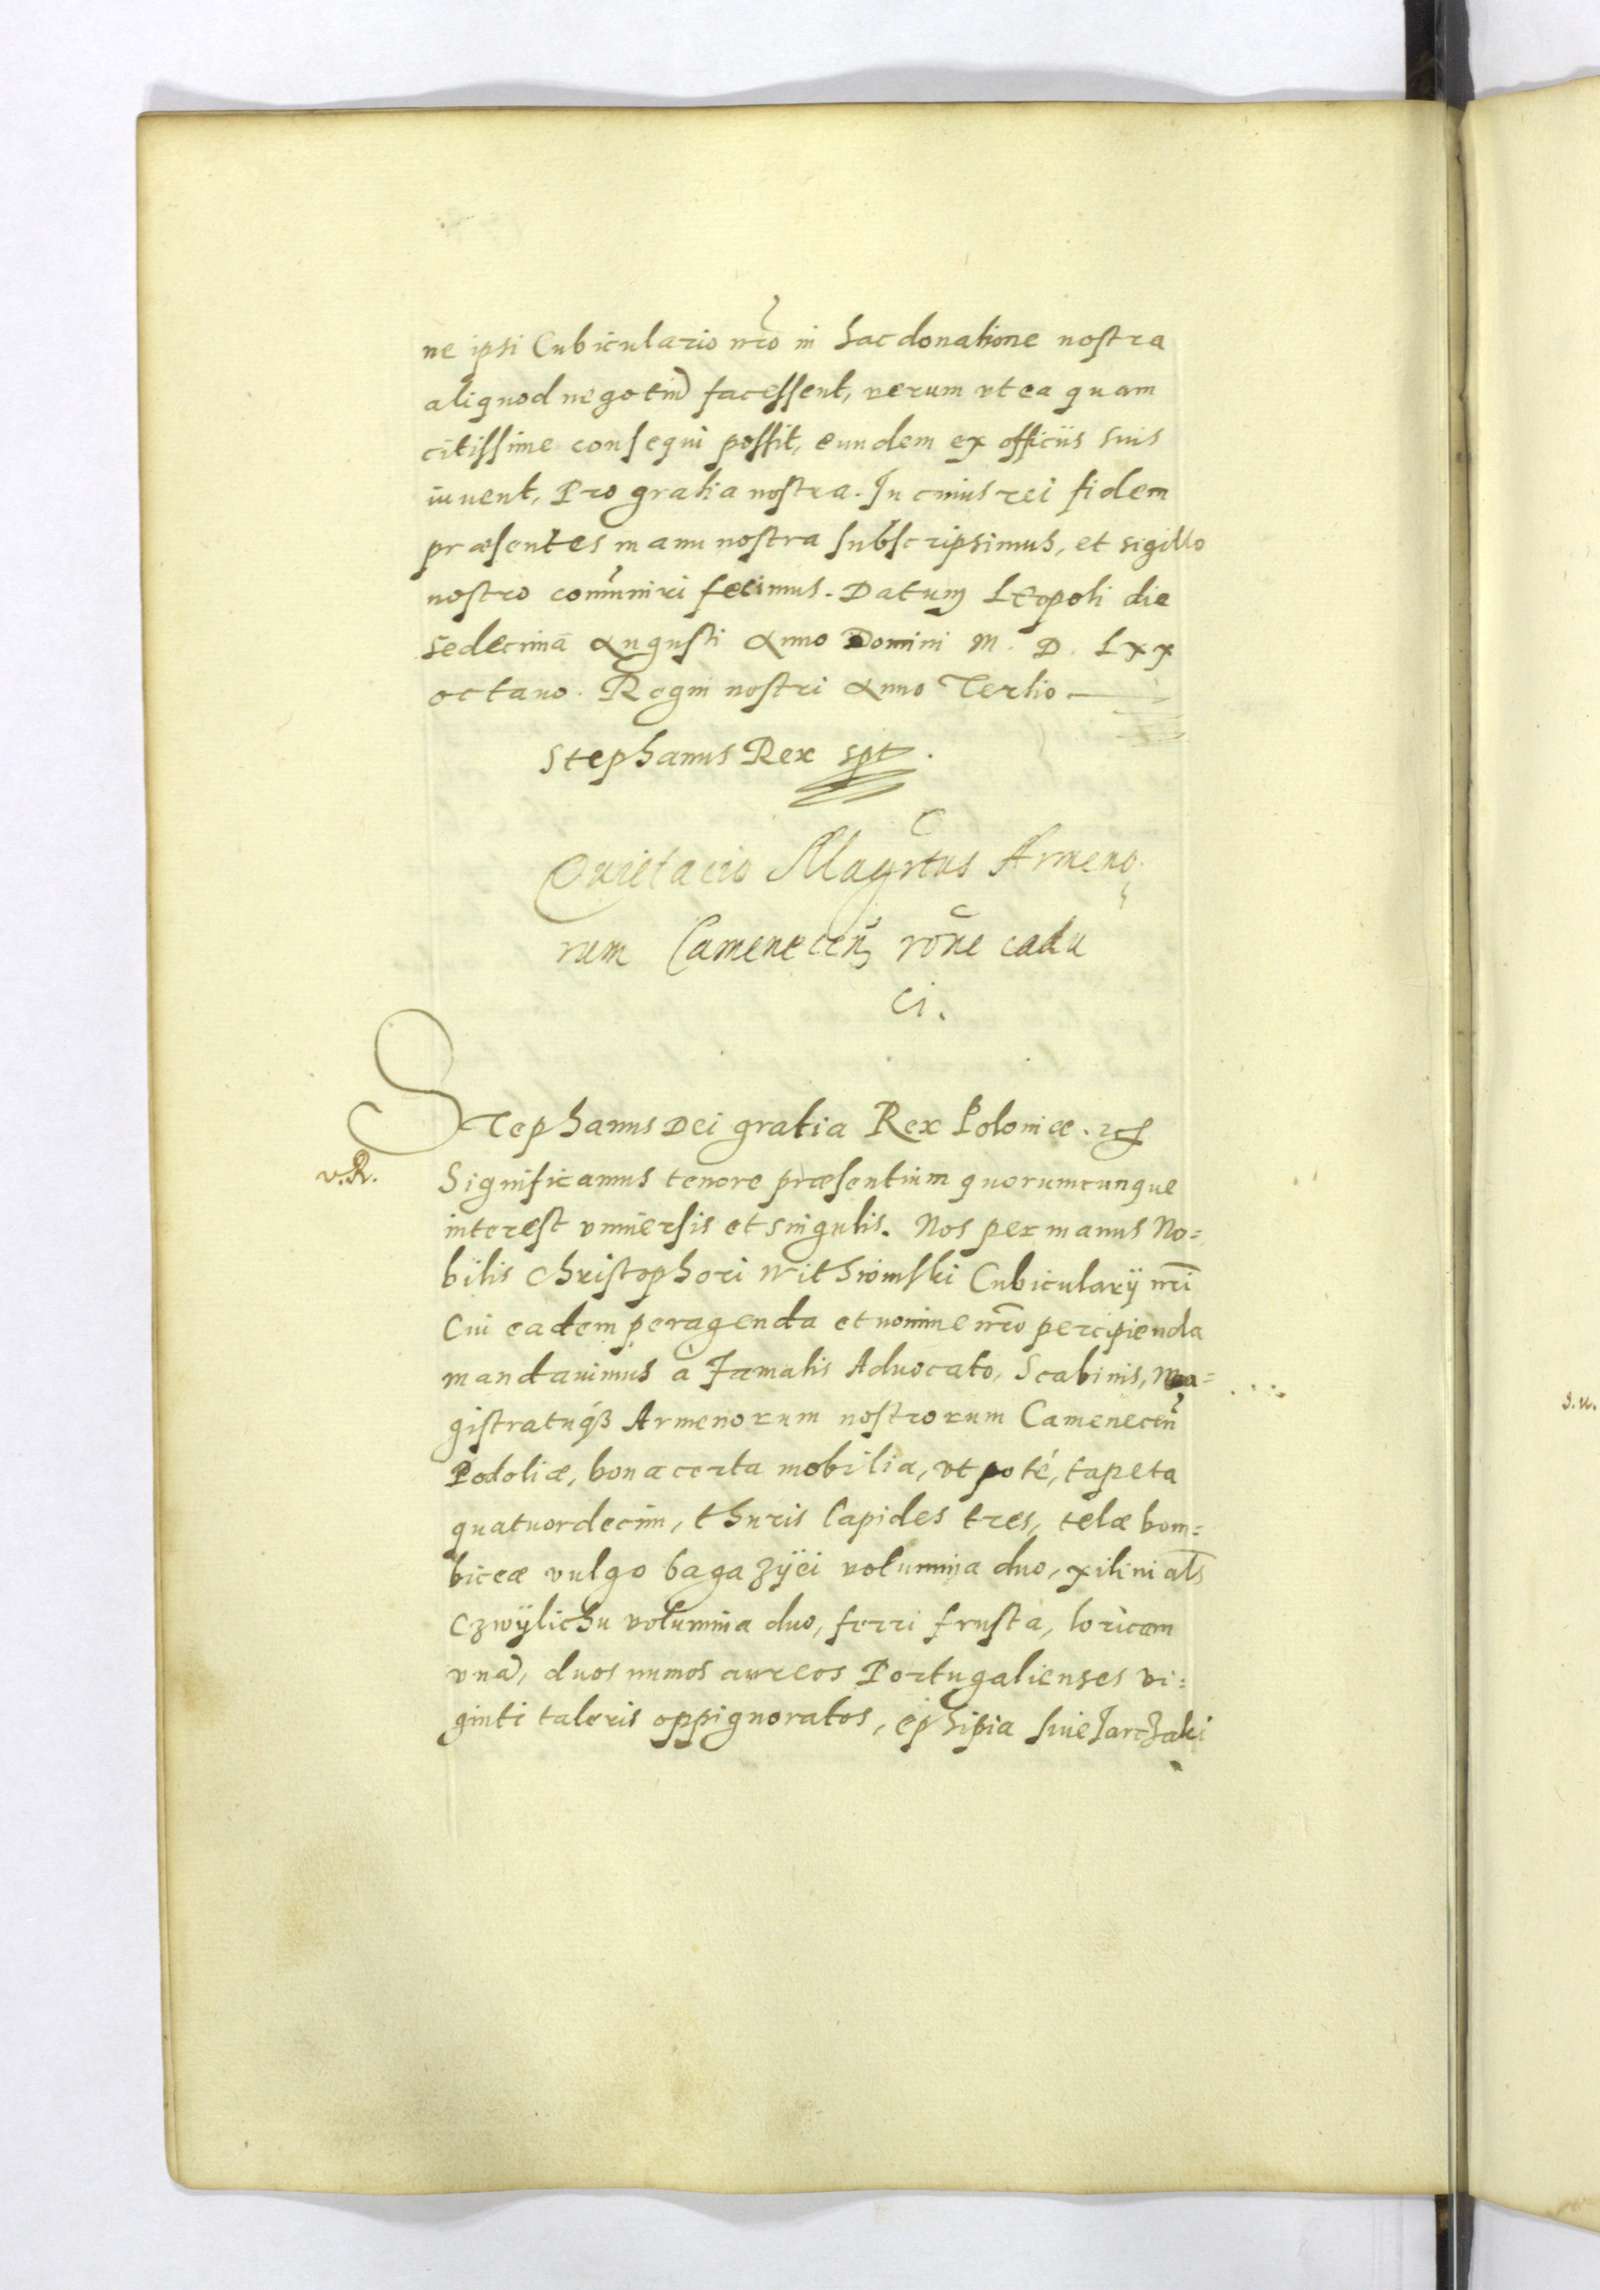 ne ipsi Cubiculario nr̃o in hac donatione nostra
aliquod negotiũ facessent, verum vt ea quam
citissime consequi possit, eundem ex officiis suis
iuuent, Pro gratia nostra. In cuius rei fidem
præsentes manu nostra subscripsimus, et sigillo
nostro com̃uniri fecimus. Datum Leopoli die
sedecimã Augusti Anno Domini M. D. Lxx
octauo. Regni nostri Anno Tertio
Stephanus Rex spt.
Quietacio Magr̃tus Armeno
rum Camenecen̄ rõne cadu
ci.
Stephanus Dei gratia Rex Poloniæ. etc
v. R.
Significamus tenore præsentium quorumcunque
interest vniuersis et singulis. Nos per manus No=
bilis Christophori Cubicularij nr̃i
Cui eadem peragenda et nomine nr̃o percipienda
mandauimus à famatis Aduocato, Scabinis, Ma=
gistratuq́ꝫ Armenorum nostrorum Camenecen̄
Podoliæ, bona certa mobilia, vt poté, tapeta
quatuordecim, thuris lapides tres, telæ bom=
biceæ vulgo bagazÿei volumina duo, xilini als
Czwÿlichu volumina duo, ferri frusta, loricam
vnã, duos numos aureos Portugalienses vi=
ginti taleris oppignoratos, ephipia siue Jarczaki
s. w.